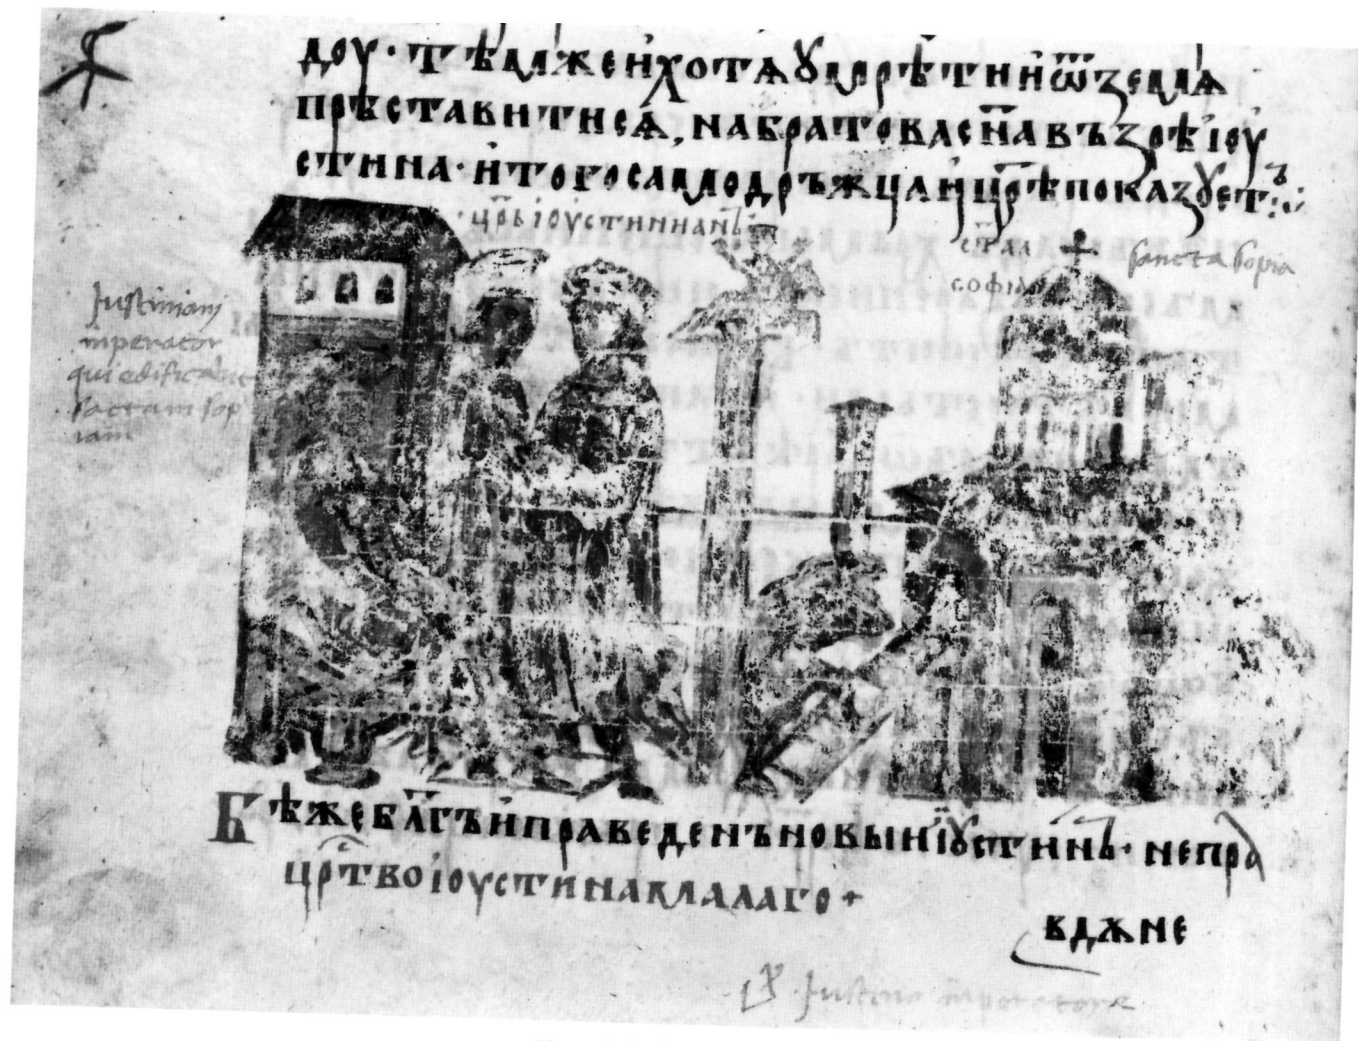 доу · тѣмже и хотѧ ꙋмрѣти и ѿ землѧ
прѣставитисѧ, на братова сн҃а въ зрѣ іоу
стина · и того самодръжца и цр҃ѣ показꙋетъ
· цр҃ь іоустинианъ
ст҃аа
софиа
sancta sofia
Justiniani
inperator
qui edificavit
sactam sop
iam
Бѣже бл҃гъ и праведенъ новыи іꙋстинъ · непра
цр҃тво іоустина малаго +
вдѫне
Justino inperatore